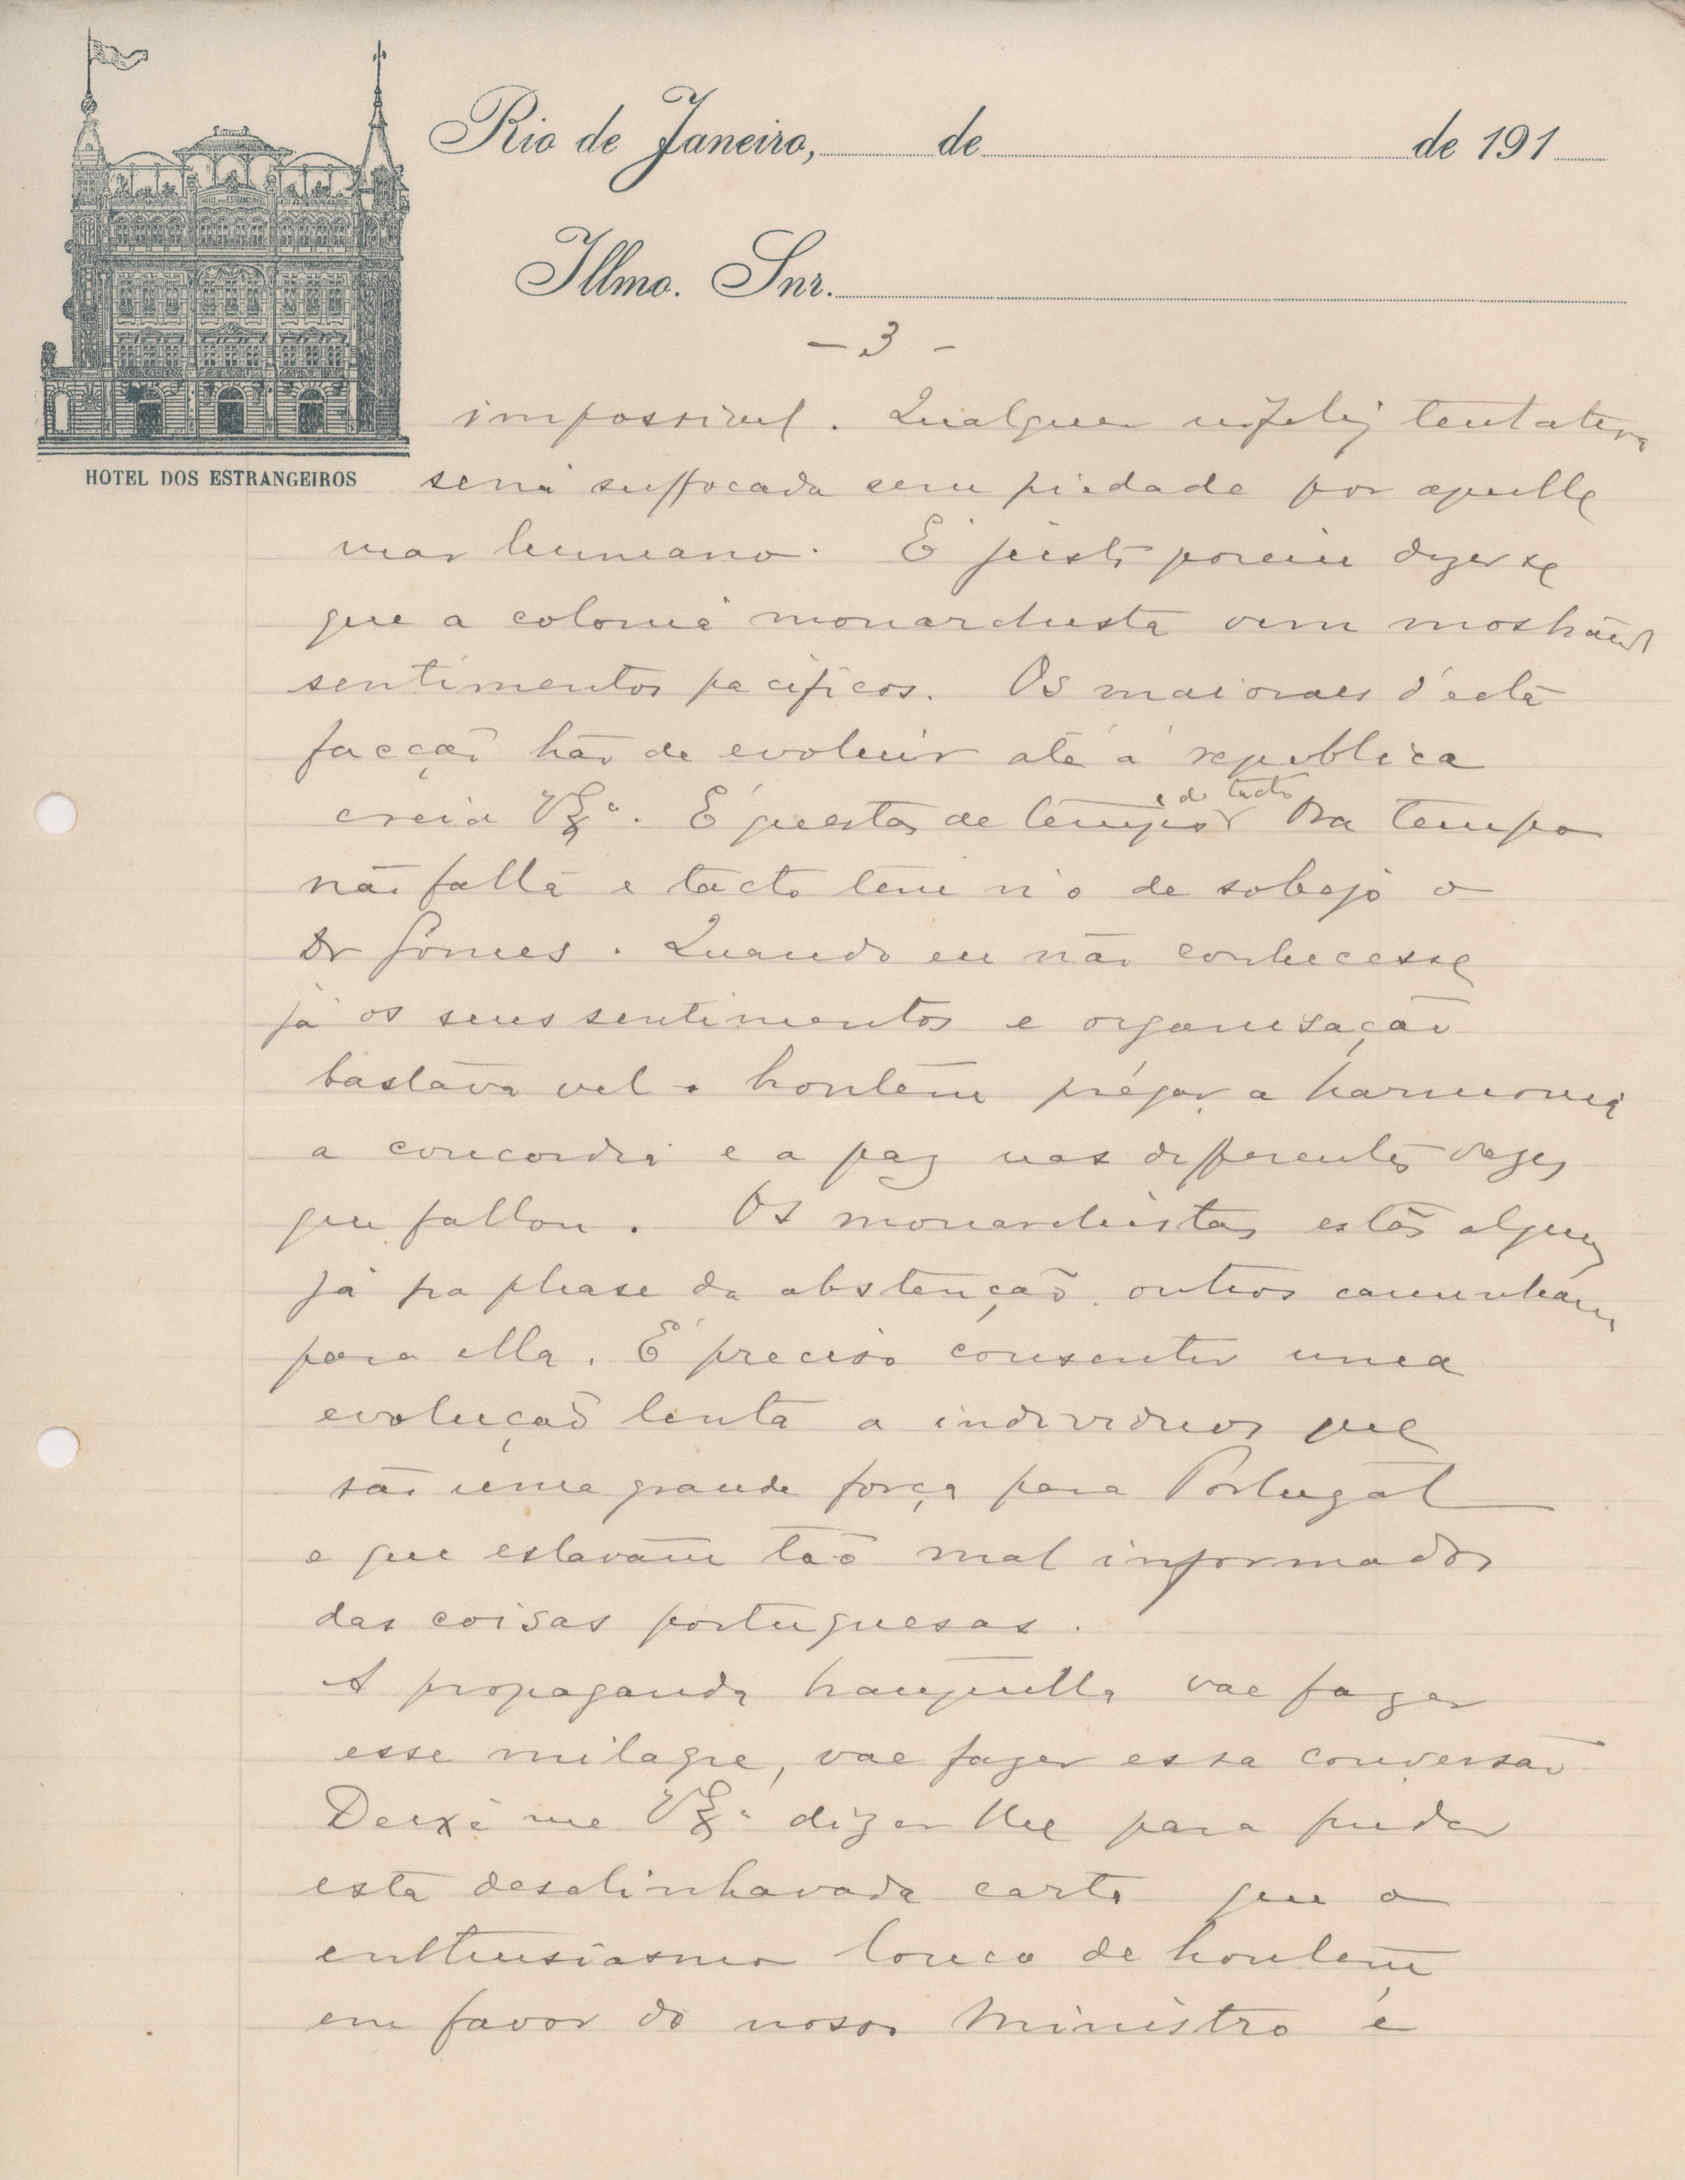 Rio de Janeiro, de de 191
Illmo. Snr.
HOTEL DOS ESTRANGEIROS
- 3 -
impossivel. Qualquer infeliz tentativa
seria suffocada sem piedade por aquelle
mar humano. É justo porem dizer se
que a colonia monarchista vem mostrando
sentimentos pacificos. Os maioraes d'esta
facção hão de evoluir até á republica
creia V Exª. É questão de tempo e do tacto Ora tempo
não falta e tacto tem n'o de sobejo o
Dr Gomes. Quando eu não conhecesse
já os seus sentimentos e organisação
bastava vel o hontem prégar a harmonia
a concordia e a paz nas differentes vezes
que fallou. Os monarchistas estão alguns
já na phase da abstenção outros caminham
para ella. É preciso consentir uma
evolução lenta a individuos que
são uma grande força para Portugal
e que estavam tão mal informados
das coisas portuguesas.
A propaganda tranquilla vae fazer
esse milagre, vae fazer essa conversão
Deixe me V Exª dizer lhe para findar
esta desalinhavada carta que o
enthusiasmo louco de hontem
em favor do nosso Ministro é